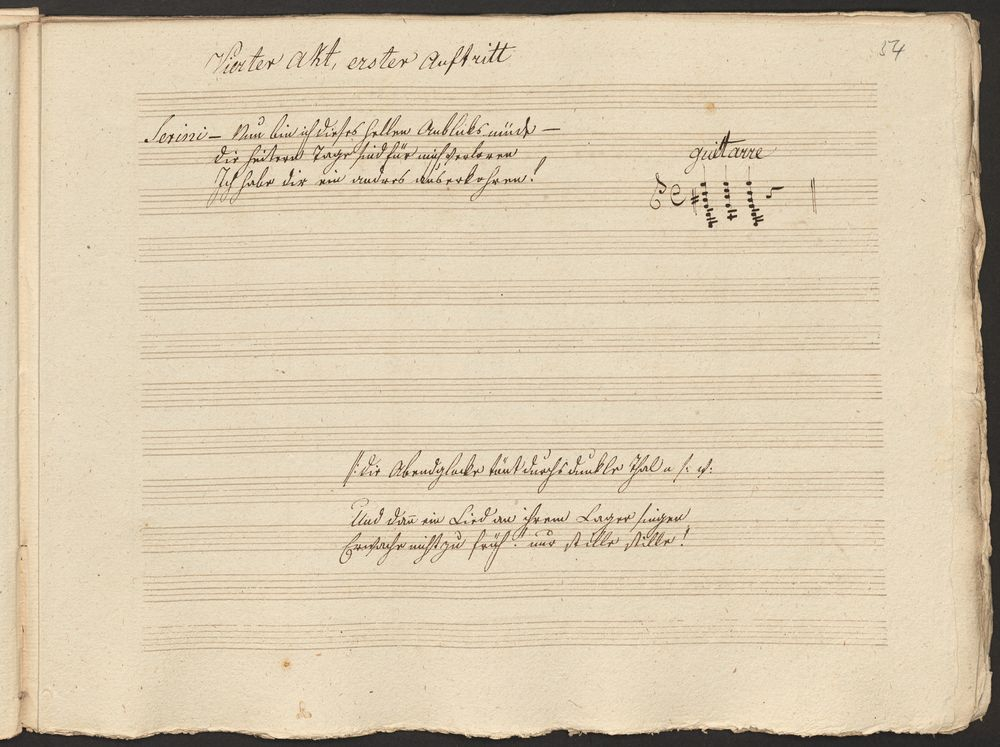 54
Vierter Akt, erster Auftritt
Serini – Nun bin ich dieses hellen Anblicks müde –
Die heitern Tage sind für mich verloren
Ich habe dir ein andres auserkohren!
Guittarre
/: Die Abendglocke tönt durchs dunkle Thal u. s: w:
Und dañ ein Lied an ihrem Lager singen
Erwache nicht zu früh! nur stille stille!